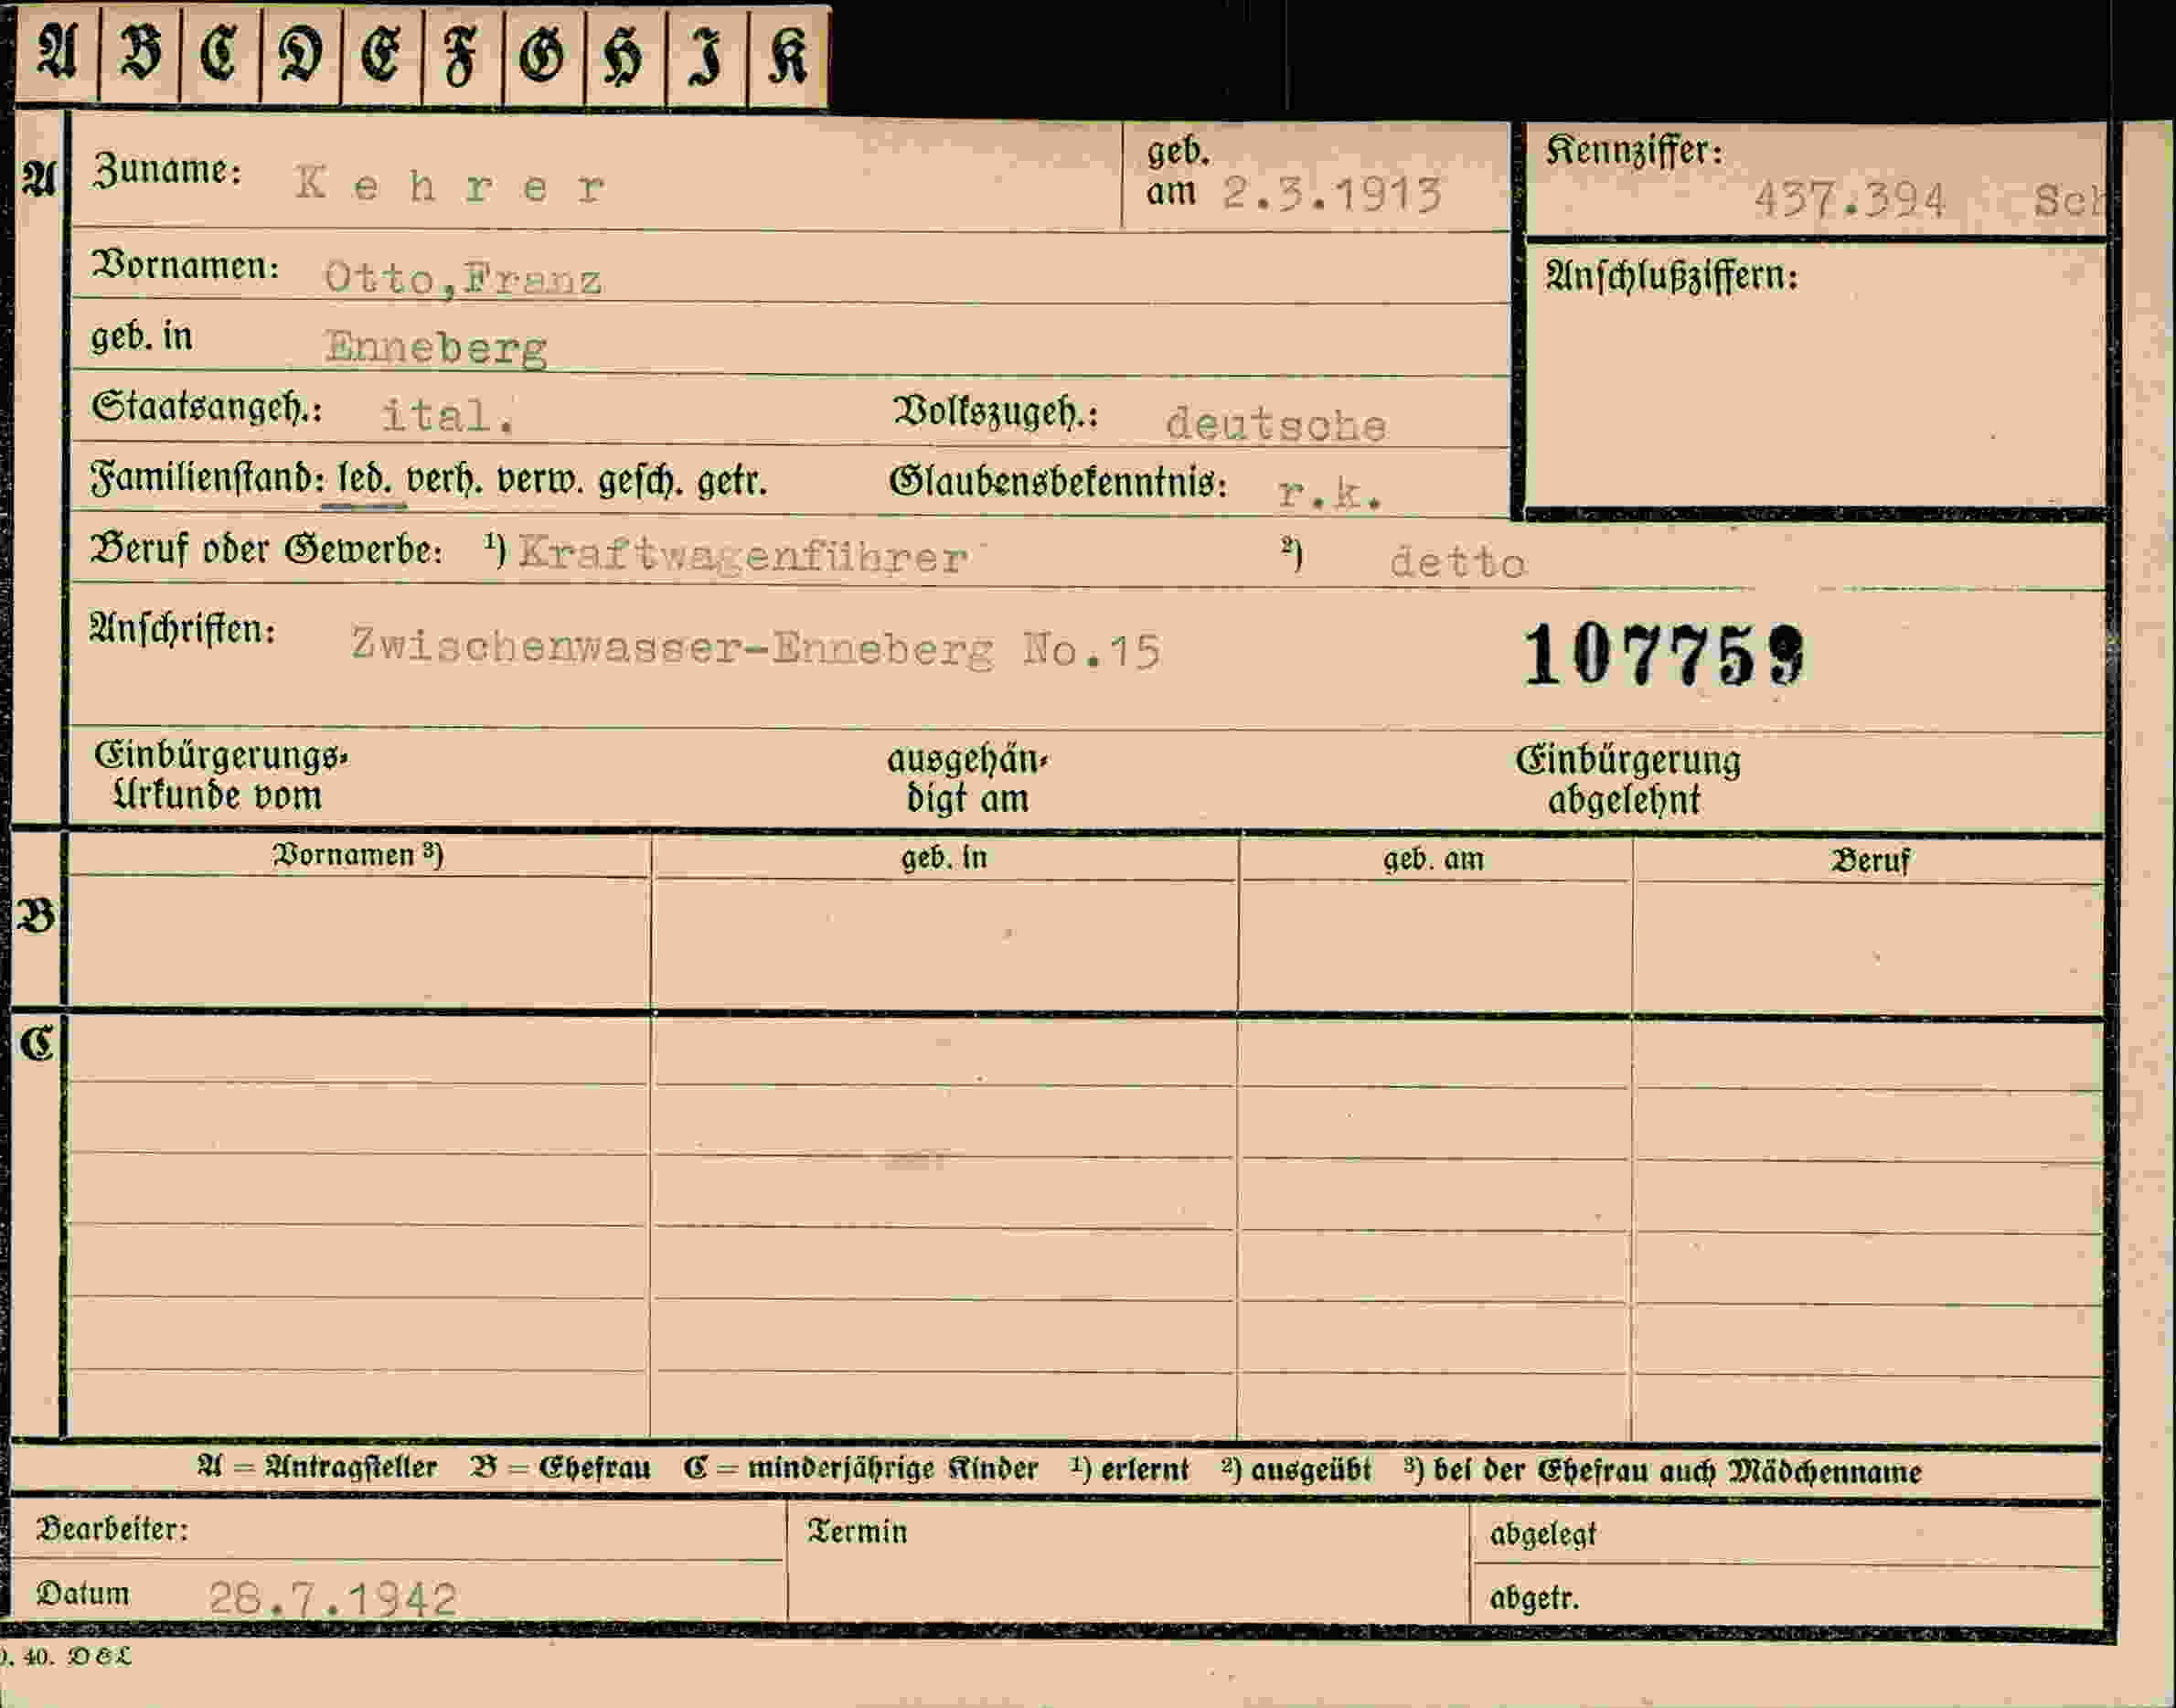 A B C D E F G H I K
A Zuname: Kehrer geb. am 2.3.1913 Kennziffer: 437.394 Sch
Vornamen: Otto,Franz Anschlußziffern:
geb. in Enneberg
Staatsangeh.: ital. Volkszugeh.: deutsche
Familienstand: led. verh. verw. gesch. getr. Glaubensbekenntnis: r.k.
Beruf oder Gewerbe: ¹) Kraftwagenführer ²) detto
Anschriften: Zwischenwasser-Enneberg No.15 107759
Einbürgerungs- ausgehän- Einbürgerung
Urkunde vom digt am abgelehnt
Vornamen ³) geb. in geb. am Beruf
B
C
A = Antragsteller B = Ehefrau C = minderjährige Kinder ¹) erlernt ²) ausgeübt ³) bei der Ehefrau auch Mädchenname
Bearbeiter: Termin abgelegt
Datum 28.7.1942 abgetr.
. 40. D E L